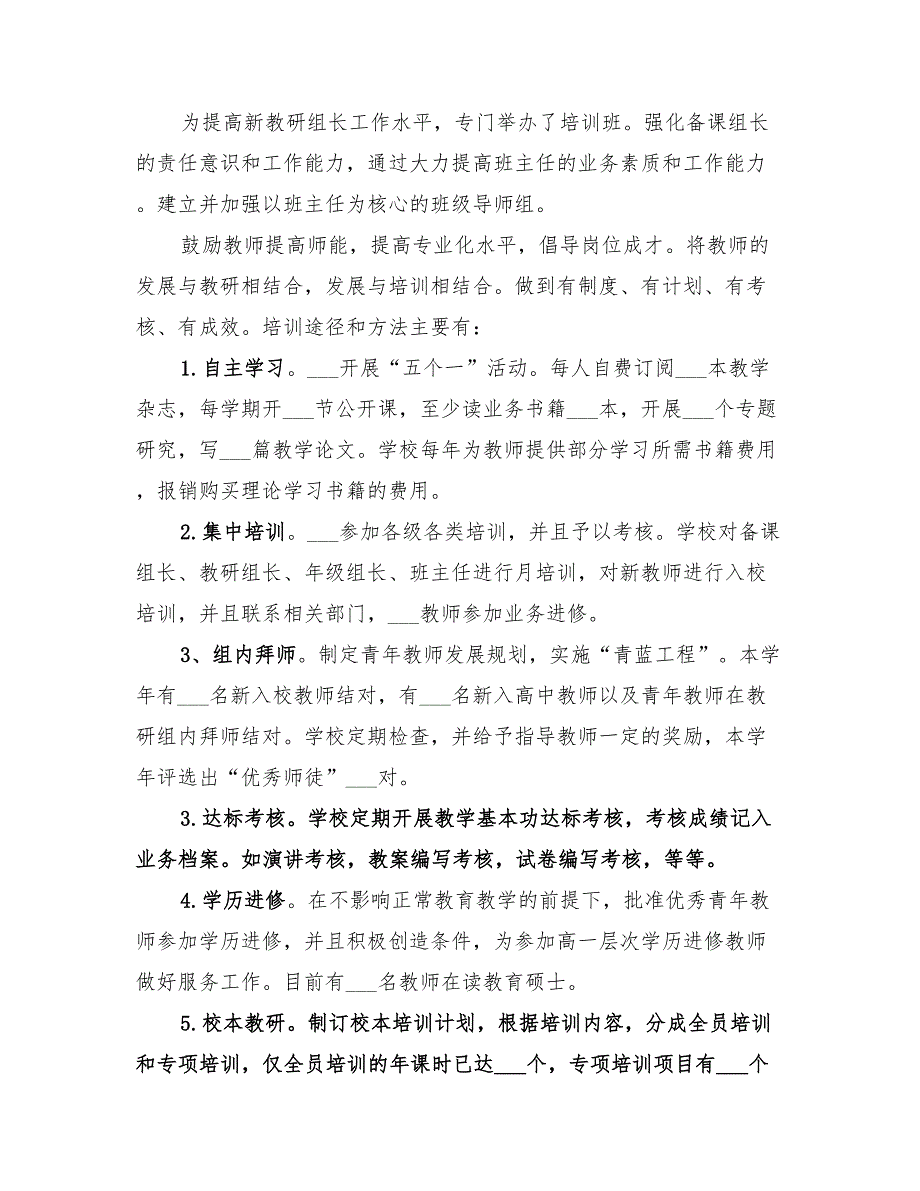 为提高新教研组长工作水平，专门举办了培训班。强化备课组长
的责任意识和工作能力，通过大力提高班主任的业务素质和工作能力
。建立并加强以班主任为核心的班级导师组。
鼓励教师提高师能，提高专业化水平，倡导岗位成才。将教师的
发展与教研相结合，发展与培训相结合。做到有制度、有计划、有考
核、有成效。培训途径和方法主要有：
1.自主学习。___开展“五个一”活动。每人自费订阅___本教学
杂志，每学期开___节公开课，至少读业务书籍___本，开展___个专题
研究，写___篇教学论文。学校每年为教师提供部分学习所需书籍费用
，报销购买理论学习书籍的费用。
2.集中培训。___参加各级各类培训，并且予以考核。学校对备课
组长、教研组长、年级组长、班主任进行月培训，对新教师进行入校
培训，并且联系相关部门，___教师参加业务进修。
3、组内拜师。制定青年教师发展规划，实施“青蓝工程”。本学
年有___名新入校教师结对，有___名新入高中教师以及青年教师在教
研组内拜师结对。学校定期检查，并给予指导教师一定的奖励，本学
年评选出“优秀师徒”___对。
3.达标考核。学校定期开展教学基本功达标考核，考核成绩记入
业务档案。如演讲考核，教案编写考核，试卷编写考核，等等。
4.学历进修。在不影响正常教育教学的前提下，批准优秀青年教
师参加学历进修，并且积极创造条件，为参加高一层次学历进修教师
做好服务工作。目前有___名教师在读教育硕士。
5.校本教研。制订校本培训计划，根据培训内容，分成全员培训
和专项培训，仅全员培训的年课时已达___个，专项培训项目有___个